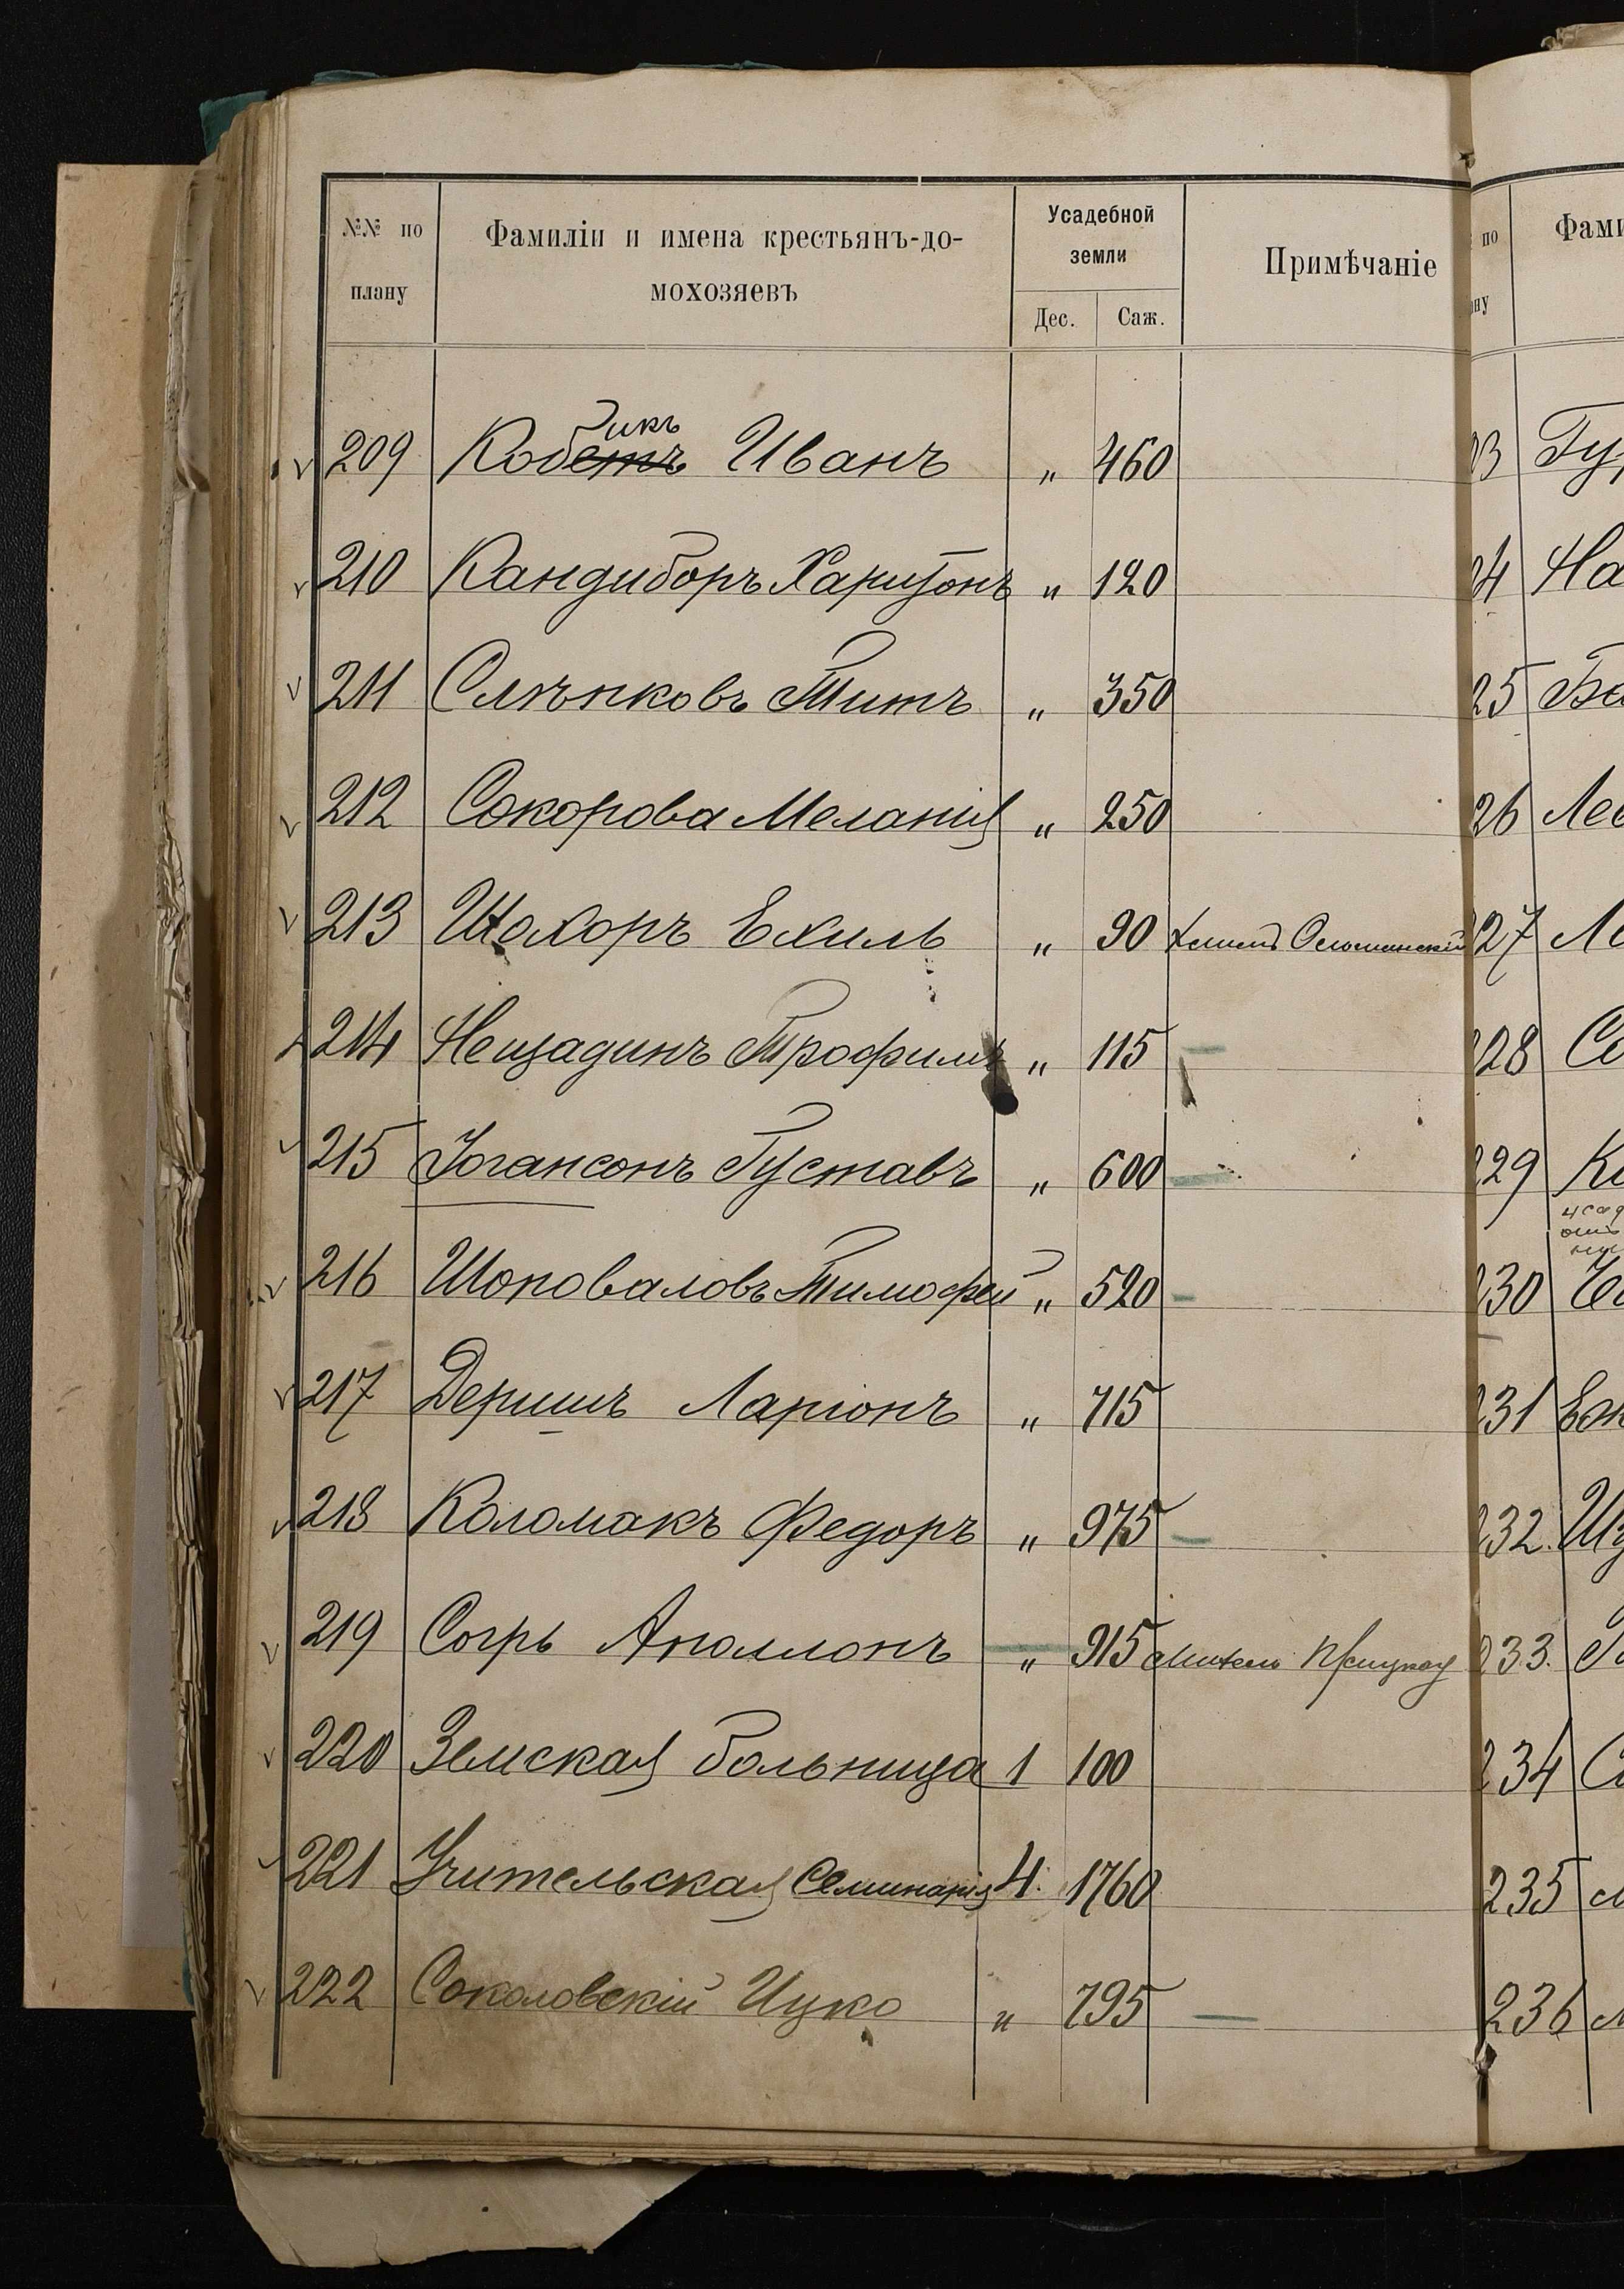 №№ по плану
Фамиліи и имена крестьянъ-до-
мохозяевъ
Усадебной
земли
Дес. Саж.
Примѣчаніе
икъ
209 Кобетъ Иванъ " 460
210 Кандиборъ Харитонъ " 120
211 Слѣпковъ Титъ " 350
212 Сокорова Меланія " 250
213 Шохоръ Ехиль " 90
214 Нещадинъ Трофимъ " 115 —
215 Іогансонъ Густавъ " 600 —
216 Шоповаловъ Тимофей " 520 —
217 Дериш Ларіонъ " 715
218 Коломакъ Федоръ " 975 —
219 Согрь Аполлонъ " 915
220 Земская больница 1 100
221 Учительская Семинарія 4. 1760
222 Соколовскій Ицко " 795 —
по
Фами
Гу
24 На
25 Ба
26 Лев
227 Ле
228 Со
229 Ко
230 Че
231
232. Шу
233.
234 С
235
236